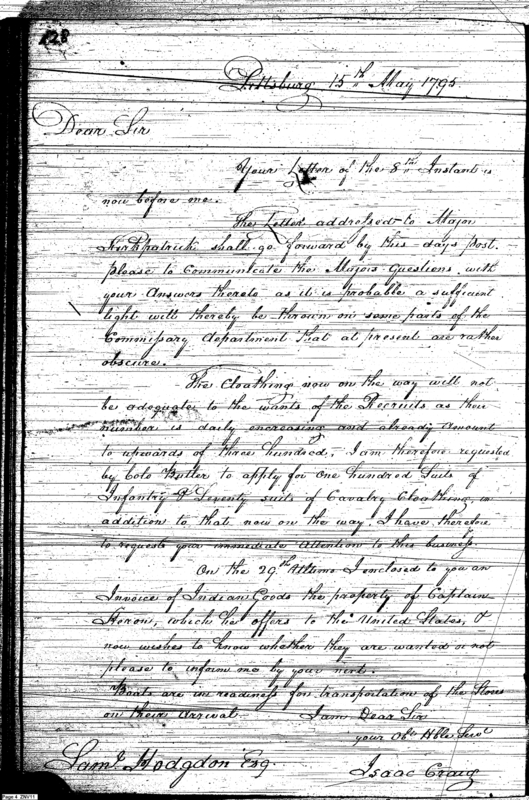 128
Pittsburg 15th May 1795
Dear Sir
Your Letter of the 8th Instant is
now before me.
The Letter addressed to Major
Kirkpatrick shall go forward by this days post.
please to Communicate the Majors Questions with
your Answers thereto as it is probable a sufficient
light will thereby be thrown on some parts of the
Commissary department that at present are rather
obscure.
The Cloathing now on the way will not
be adequate to the wants of the Recruits as their
number is daily encreasing and already Amount
to upwards of three hundred, I am therefore requested
by Colo Butler to apply for One hundred Suits of
Infantry & Seventy suits of Cavalry Cloathing in
addition to that now on the way I have therefore
to request your immediate Attention to this business.
On the 29th Ultimo I enclosed to you an
Invoice of Indian Goods the property of Captain
Heron, which he offers to the United States, &
now wishes to know whether they are wanted or not
please to inform me by your next.
Boats are in readiness for transportation of the Stores
on their arrival I am Dear Sir
your Obt Hble Servt
Saml Hodgdon Esq.
Isaac Craig
Page 4 ZNV11